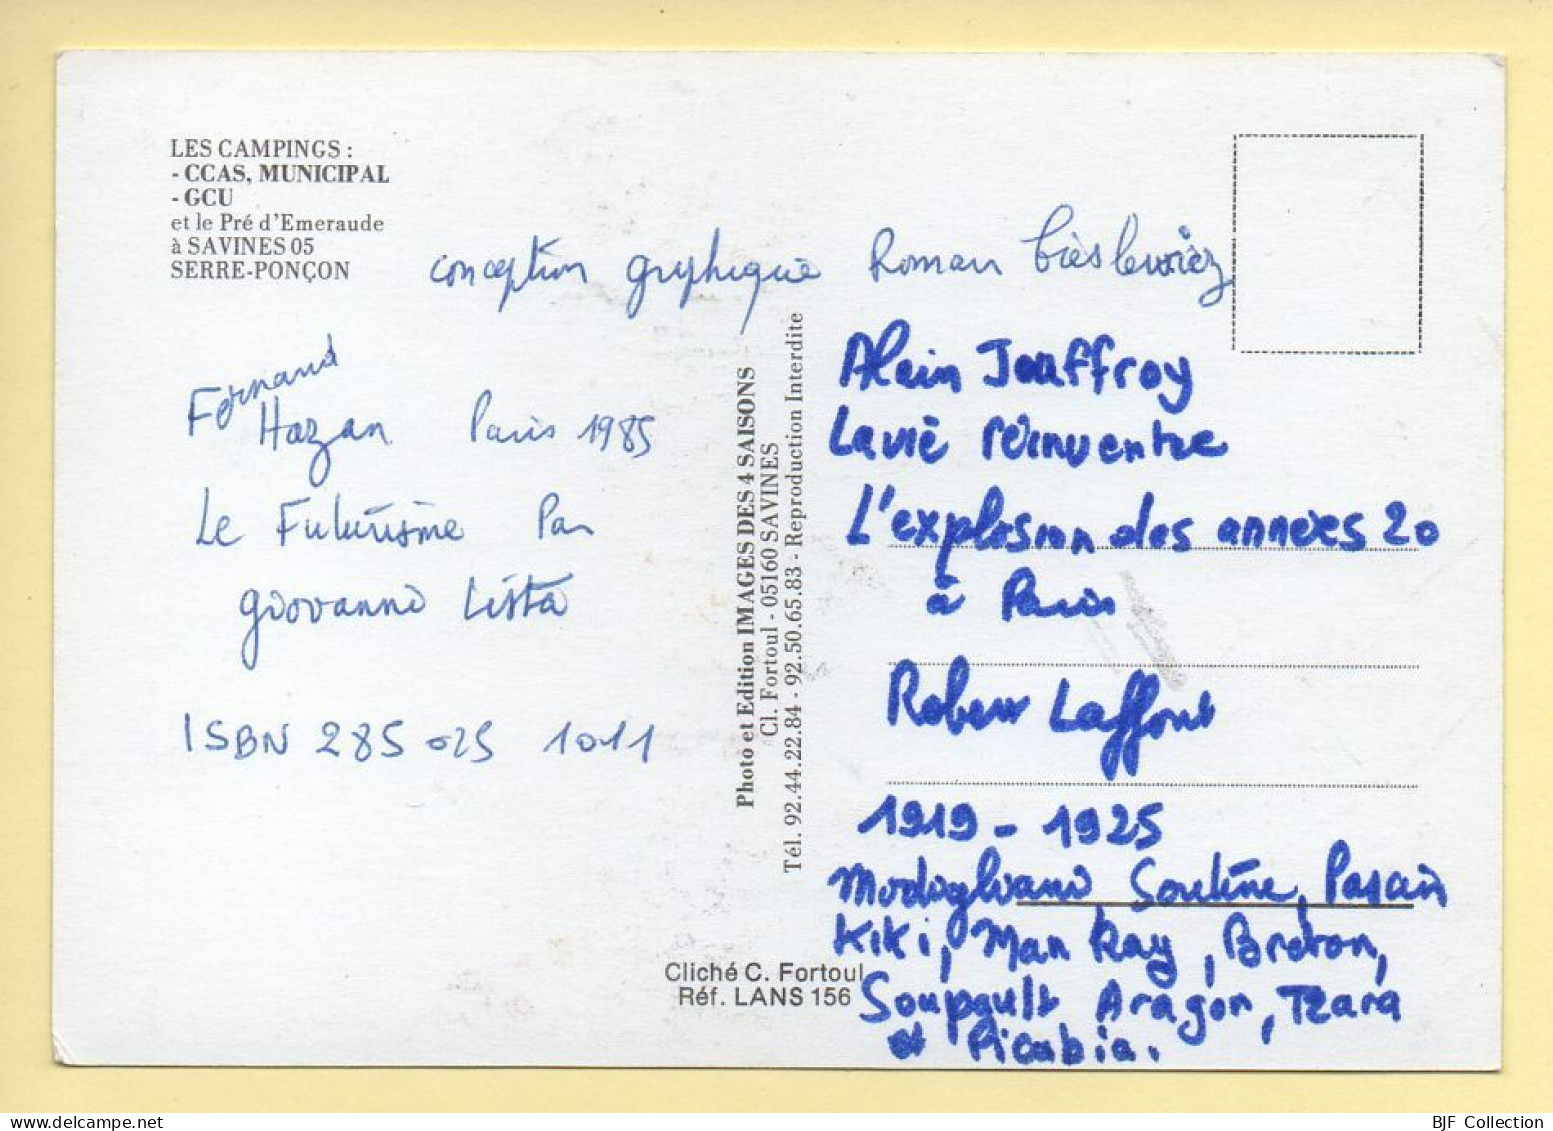 LES CAMPINGS :
- CCAS, MUNICIPAL
- GCU
et le Pré d'Emeraude
à SAVINES 05
SERRE-PONÇON
conception graphique Roman Cieslewicz
Fernand
Hazan Paris 1985
Le Futurisme Par
Giovanni Lista
ISBN 285 025 1011
Photo et Edition IMAGES DES 4 SAISONS
Cl. Fortoul - 05160 SAVINES
Tél. 92.44.22.84 - 92.50.65.83 - Reproduction Interdite
Cliché C. Fortoul
Réf. LANS 156
Alain Jouffroy
La vie réinventée
L'explosion des années 20
à Paris
Robert Laffont
1919 - 1925
Modigliani Soutine, Pascin
Kiki, Man Ray, Breton,
Soupault Aragon, Tzara
et Picabia.
BJF Collection